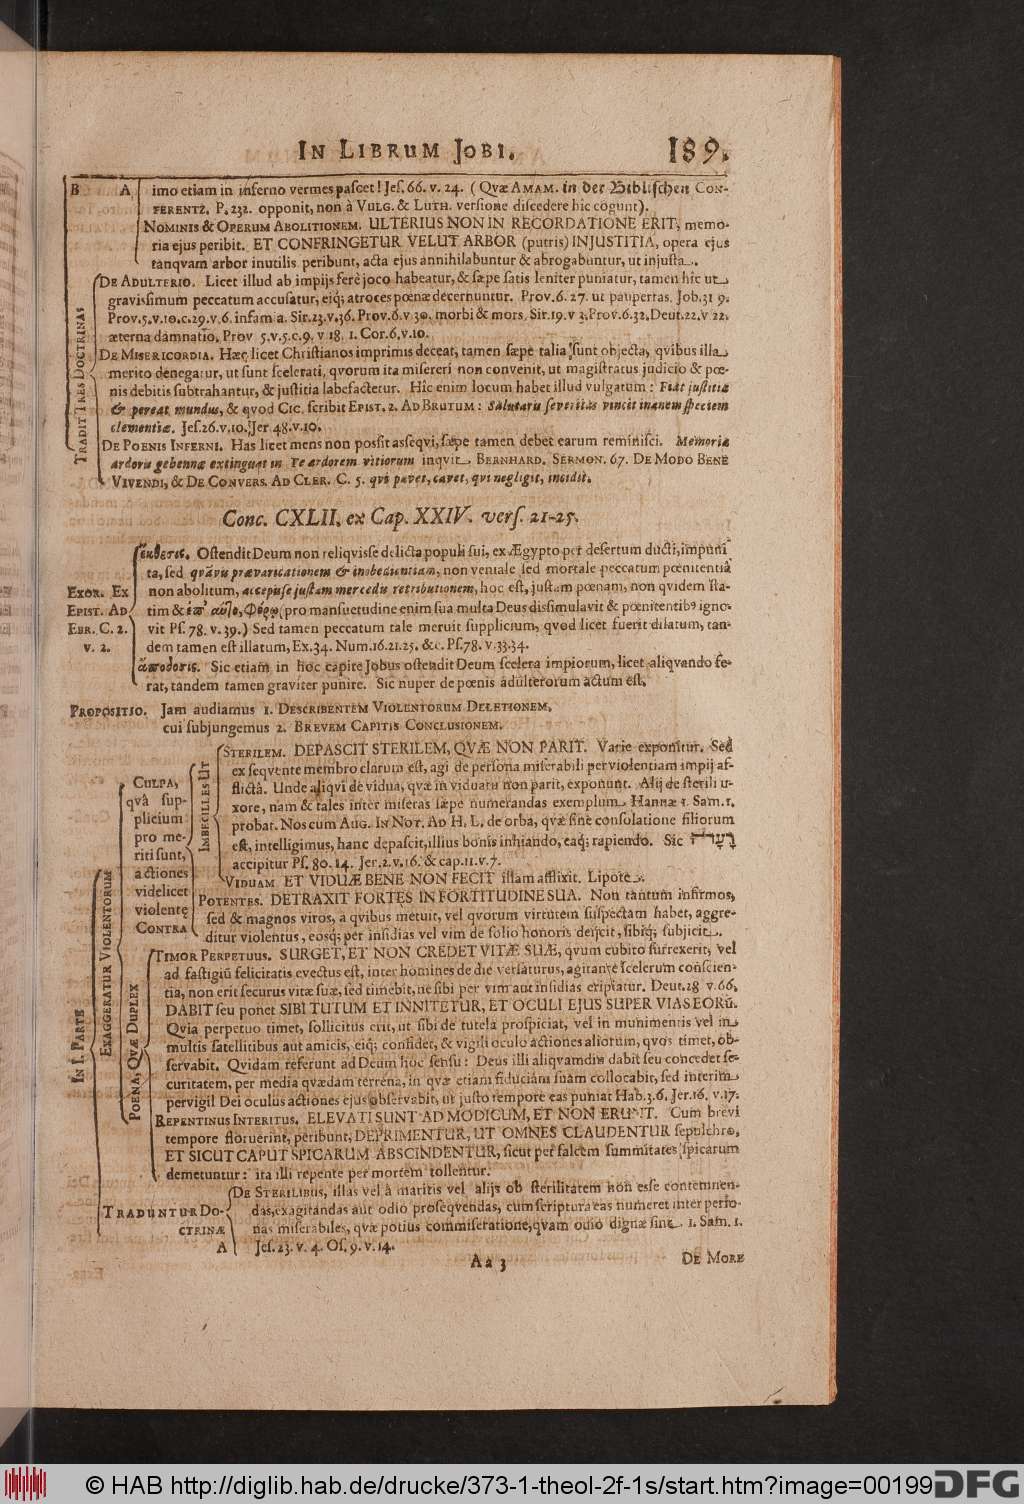 IN LIBRUM JOBI. 189.
B A imo etiam in inferno vermes pascet! Jes. 66. v. 24. (QVÆ AMAM. in der Biblischen CON-
FERENTZ. P. 232. opponit, non à VULG. & LUTH. versione discedere hic cogunt).
NOMINIS & OPERUM ABOLITIONEM. ULTERIUS NON IN RECORDATIONE ERIT, memo-
ria ejus peribit. ET CONFRINGETUR VELUT ARBOR (putris) INJUSTITIA, opera ejus
tanqvam arbor inutilis peribunt, acta ejus annihilabuntur & abrogabuntur, ut injusta.
TRADIT TRES DOCTRINAS
DE ADULTERIO. Licet illud ab impijs ferè joco habeatur, & sæpe satis leniter puniatur, tamen hîc ut
gravissimum peccatum accusatur, eiq; atroces pœnæ decernuntur. Prov. 6. 27. ut paupertas. Job. 31 9.
Prov. 5. v. 10. c. 29. v. 6. infamia. Sir. 23. v. 36. Prov. 6. v 30. morbi & mors. Sir. 19. v 3; Prov. 6. 32. Deut. 22. v 22.
æterna damnatio, Prov 5. v. 5. c. 9. v 18. 1. Cor. 6. v. 10.
DE MISERICORDIA. Hæc licet Christianos imprimis deceat, tamen sæpe talia sunt objecta, qvibus illa
merito denegatur, ut sunt scelerati, qvorum ita misereri non convenit, ut magistratus judicio & pœ-
nis debitis subtrahantur, & justitia labefactetur. Hîc enim locum habet illud vulgatum: Fiat justitia
& pereat mundus, & qvod CIC. scribit EPIST. 2. AD BRUTUM: Salutaris severitas vincit inanem speciem
clementiæ. Jes. 26. v. 10. Jer 48. v. 10.
DE POENIS INFERNI. Has licet mens non possit asseqvi, sæpe tamen debet earum reminisci. Memoria
ardoris gehennæ extinguat in Te ardorem vitiorum inqvit BERNHARD. SERMON. 67. DE MODO BENE
VIVENDI, & DE CONVERS. AD CLER. C. 5. qvi pavet, cavet, qvi negligit, incidit.
Conc. CXLII. ex Cap. XXIV. vers. 21-25.
EXOR. EX
EPIST. AD
EBR. C. 2.
v. 2.
ἔκθεσις. Ostendit Deum non reliqvisse delicta populi sui, ex Ægypto per desertum ducti, impuni
ta, sed qvamvis prævaricationem & inobedientiam, non veniale sed mortale peccatum pœnitentiâ
non abolitum, accepisse justam mercedis retributionem, hoc est, justam pœnam, non qvidem sta-
tim & (pro mansuetudine enim sua multa Deus dissimulavit & pœnitentibꝰ igno-
vit Ps. 78. v. 39.) Sed tamen peccatum tale meruit supplicium, qvod licet fuerit dilatum, tan-
dem tamen est illatum, Ex. 34. Num. 16. 21. 25. &c. Ps. 78. v. 33. 34.
ἀπόδοσις. Sic etiam in hoc capite Jobus ostendit Deum scelera impiorum, licet aliqvando fe-
rat, tandem tamen graviter punire. Sic nuper de pœnis adulterorum actum est.
PROPOSITIO. Jam audiamus 1. DESCRIBENTEM VIOLENTORUM DELETIONEM,
cui subjungemus 2. BREVEM CAPITIS CONCLUSIONEM.
IN I. PARTE
EXAGGERATUR VIOLENTORUM
CULPA,
qvâ sup-
plicium
pro me-
riti sunt,
actiones
videlicet
violentę
CONTRA
IMBECILLES UT
STERILEM. DEPASCIT STERILEM, QVÆ NON PARIT. Varie exponitur. Sed
ex seqvente membro clarum est, agi de persona miserabili per violentiam impij af-
flictâ. Unde aliqvi de vidua, qvæ in viduatu non parit, exponunt. Alij de sterili u-
xore, nam & tales inter miseras sæpe numerandas exemplum Hannæ 1. Sam. 1.
probat. Nos cum AUG. IN NOT. AD H. L. de orba, qvæ sine consolatione filiorum
est, intelligimus, hanc depascit, illius bonis inhiando, eaq; rapiendo. Sic
accipitur Ps. 80. 14. Jer. 2. v. 16. & cap. 11. v. 7.
VIDUAM ET VIDUÆ BENE NON FECIT illam afflixit. Lipote.
POTENTES. DETRAXIT FORTES IN FORTITUDINE SUA. Non tantum infirmos,
sed & magnos viros, à qvibus metuit, vel qvorum virtutem suspectam habet, aggre-
ditur violentus, eosq; per insidias vel vim de solio honoris dejicit, sibiq; subjicit.
POENA, QVÆ DUPLEX
TIMOR PERPETUUS. SURGET, ET NON CREDET VITÆ SUÆ, qvum cubito surrexerit, vel
ad fastigiū felicitatis evectus est, inter homines de die versaturus, agitante scelerum conscien-
tia, non erit securus vitæ suæ, sed timebit, ne sibi per vim aut insidias eripiatur. Deut. 28 v. 66.
DABIT seu ponet SIBI TUTUM ET INNITETUR, ET OCULI EJUS SUPER VIAS EORŪ.
Qvia perpetuo timet, sollicitus erit, ut sibi de tutela prospiciat, vel in munimentis vel in
multis satellitibus aut amicis, eiq; confidet, & vigili oculo actiones aliorum, qvos timet, ob-
servabit. Qvidam referunt ad Deum hoc sensu: Deus illi aliqvamdiu dabit seu concedet se-
curitatem, per media qvædam terrena, in qvæ etiam fiduciam suam collocabit, sed interim
pervigil Dei oculus actiones ejus observabit, ut justo tempore eas puniat Hab. 3. 6. Jer. 16. v. 17.
REPENTINUS INTERITUS. ELEVATI SUNT AD MODICUM, ET NON ERUNT. Cum brevi
tempore floruerint, peribunt, DEPRIMENTUR, UT OMNES CLAUDENTUR sepulchro,
ET SICUT CAPUT SPICARUM ABSCINDENTUR, sicut per falcem summitates spicarum
demetuntur: ita illi repente per mortem tollentur.
TRADUNTUR DO-
CTRINÆ
A
DE STERILIBUS, illas vel à maritis vel alijs ob sterilitatem non esse contemnen-
das, exagitandas aut odio proseqvendas, cum scriptura eas numeret inter perso-
nas miserabiles, qvæ potius commiseratione, qvam odio dignæ sint. 1. Sam. 1.
Jes. 23. v. 4. Os. 9. v. 14.
Aa 3
DE MORE
© HAB http://diglib.hab.de/drucke/373-1-theol-2f-1s/start.htm?image=00199
DFG